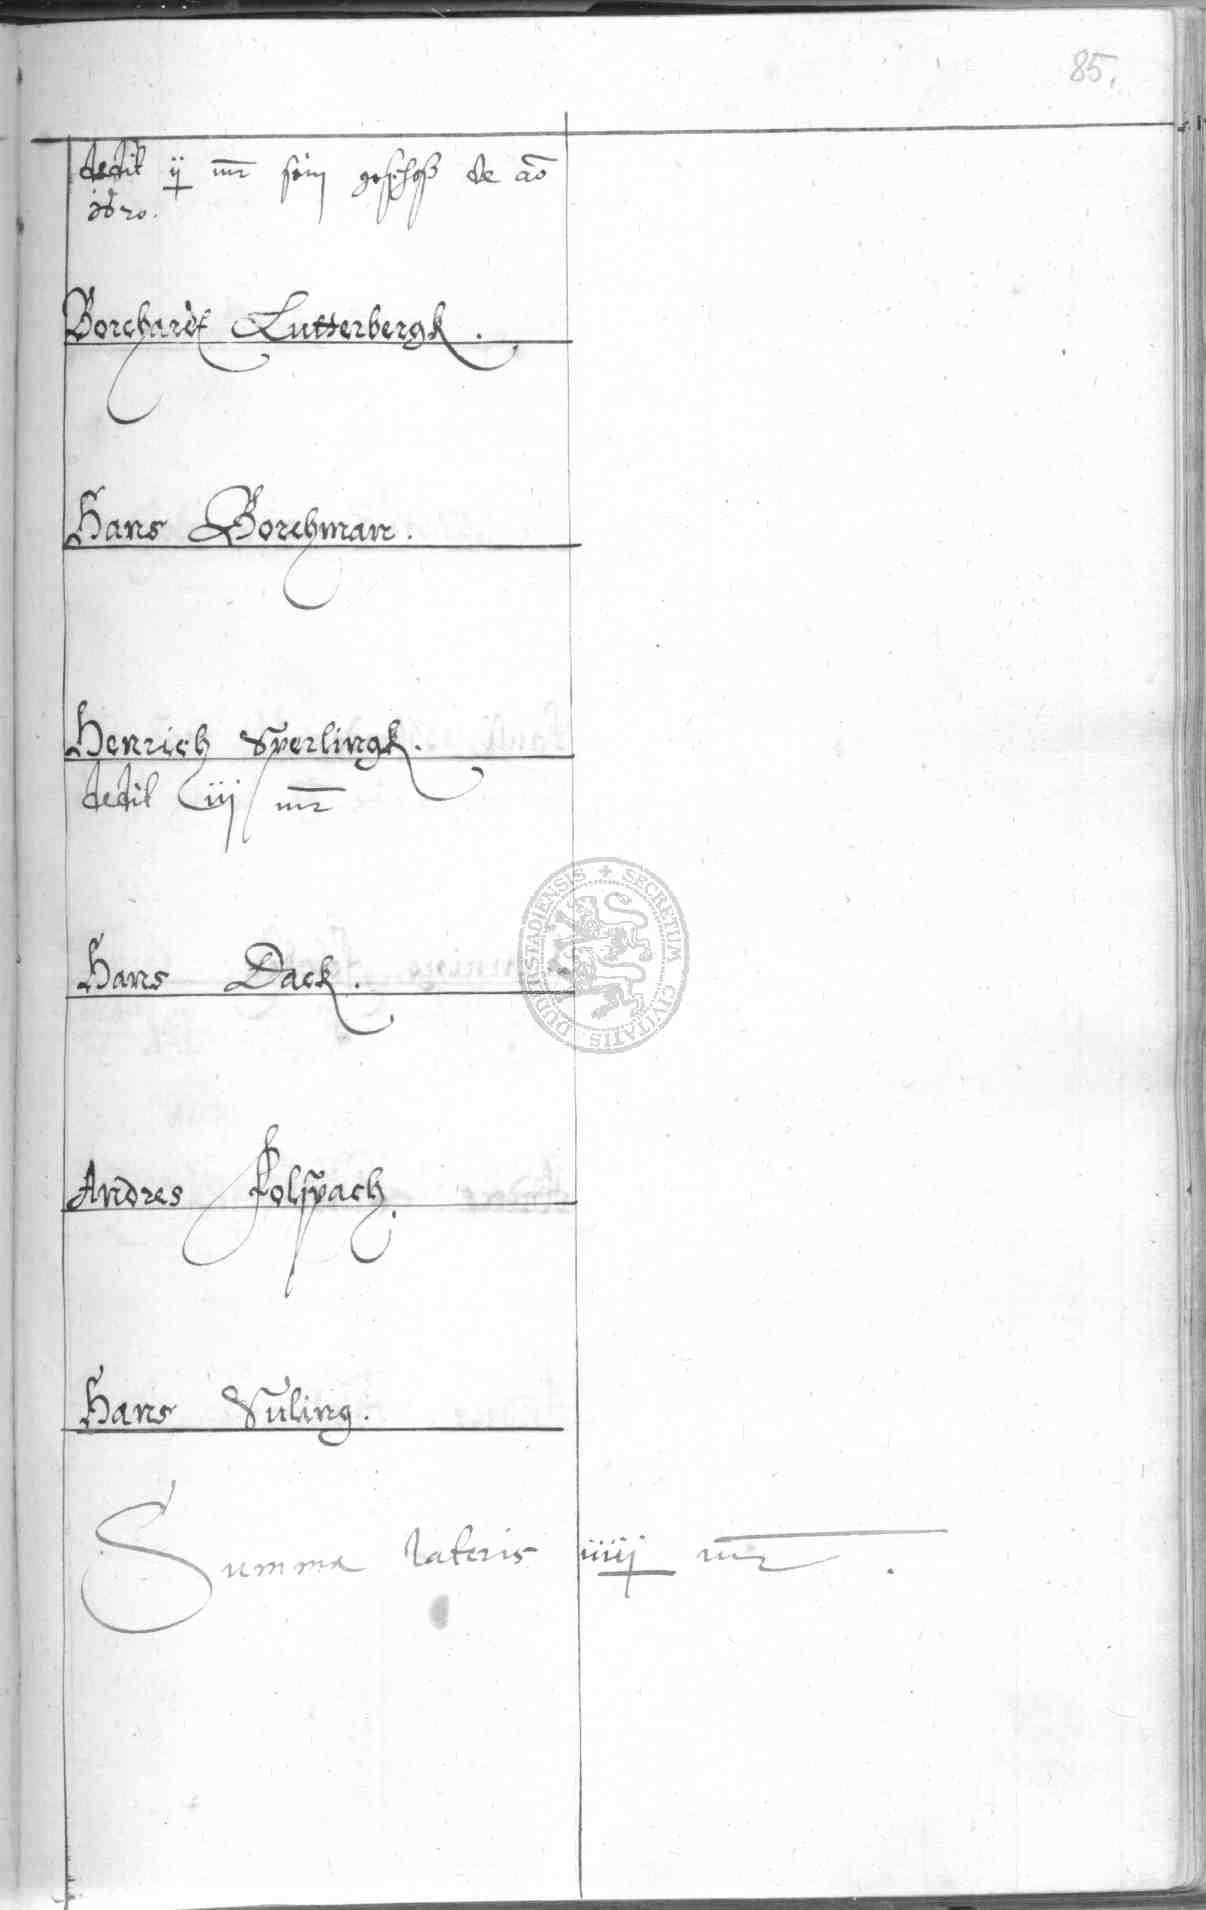 85.
dedit ij mr sein geschoß de ao
Borchardt Lutterbergk.
Hans Borchman.
Henrich Sperlingk.
dedit iij mr
Hans Dack.
Andres Polspach.
Hans Suling.
Summa lateris iiiij mr.
SECRETUM CIVITATIS DUDERSTADIENSIS